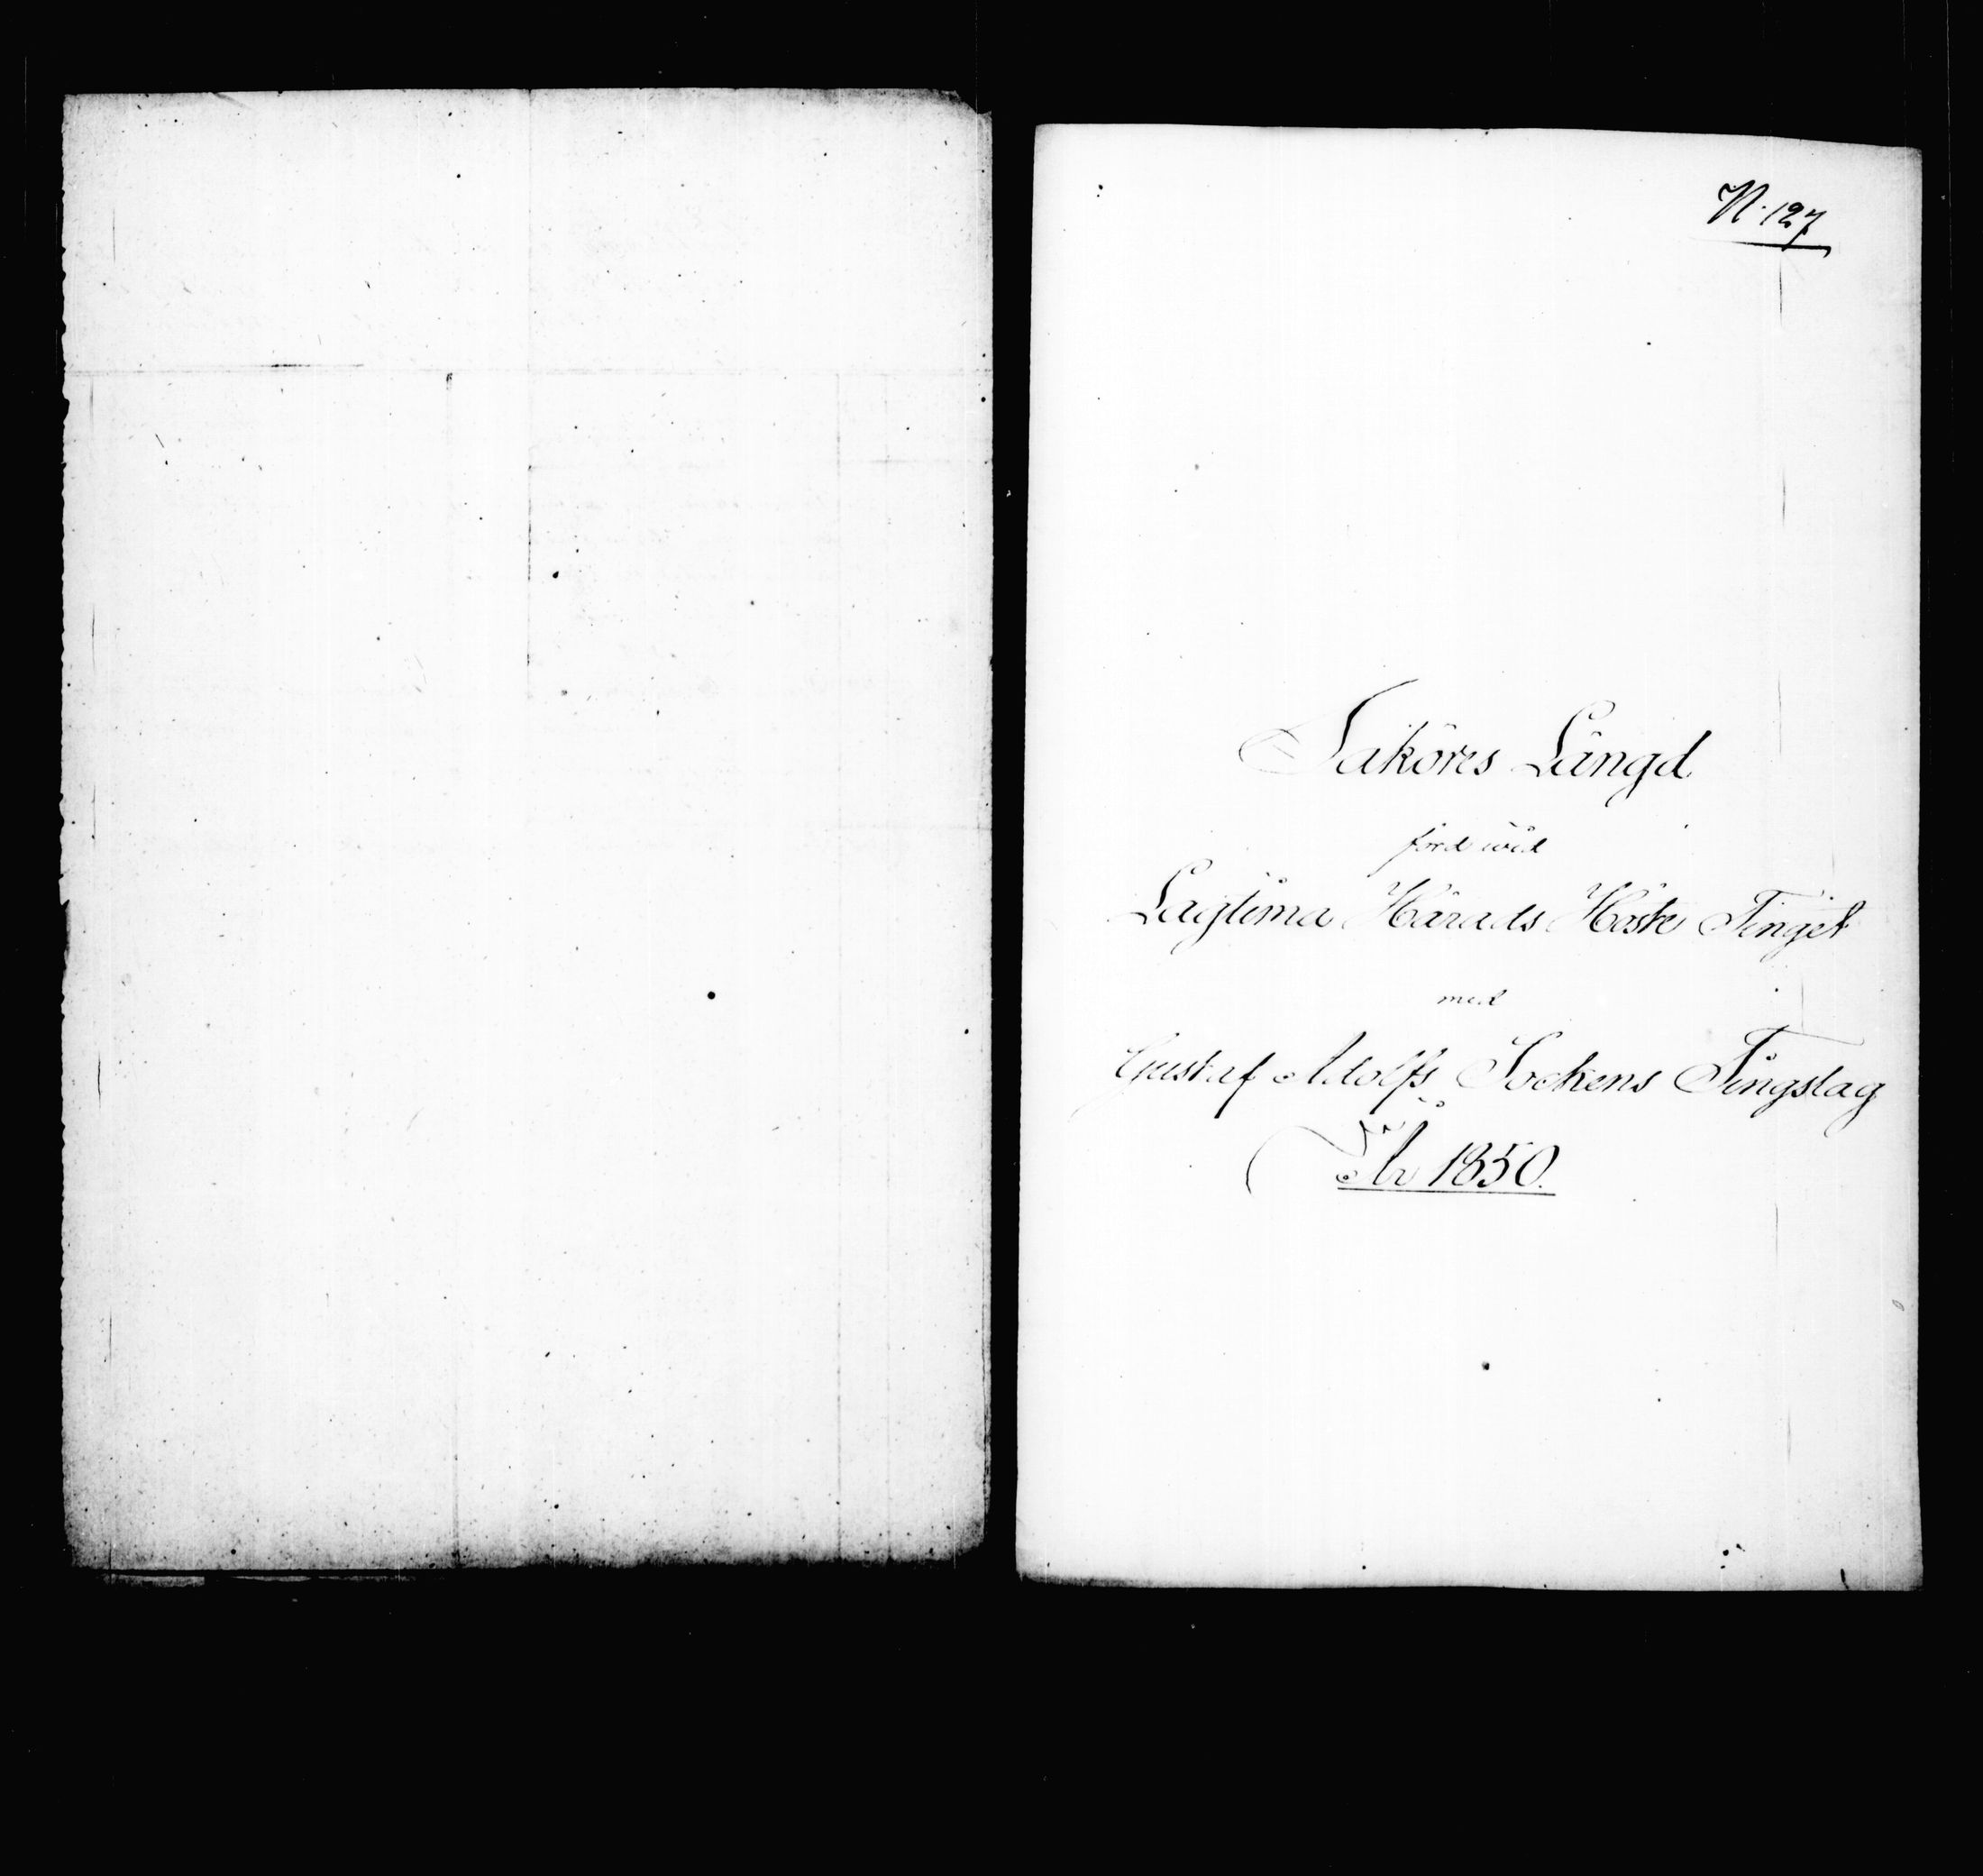 N. 127
Saköres Längd
förd wid
Lagtima Härads Höste Tinget
med
Gustaf Adolfs Sockens Tingslag
År 1850.